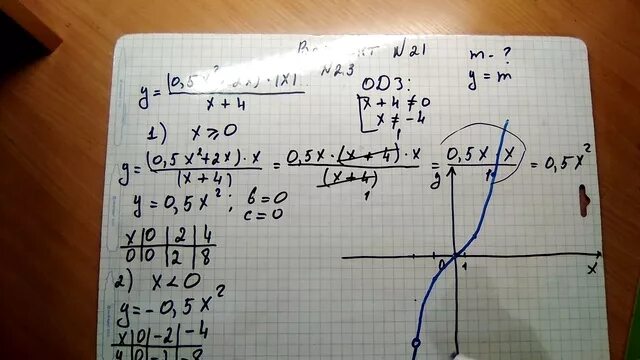 Вариант N21
N23
y = (0,5x² + 2x) · |x| / x + 4
ОДЗ:
x + 4 ≠ 0
x ≠ -4
m - ?
y = m
1) x ≥ 0
y = (0,5x² + 2x) · x / (x + 4) = 0,5x · (x + 4) · x / (x + 4) = 0,5x · x / 1 = 0,5x²
y = 0,5x²; b = 0
c = 0
x | 0 | 2 | 4
0 | 0 | 2 | 8
2) x < 0
y = -0,5x²
x | 0 | -2 | -4
y
0 1
x